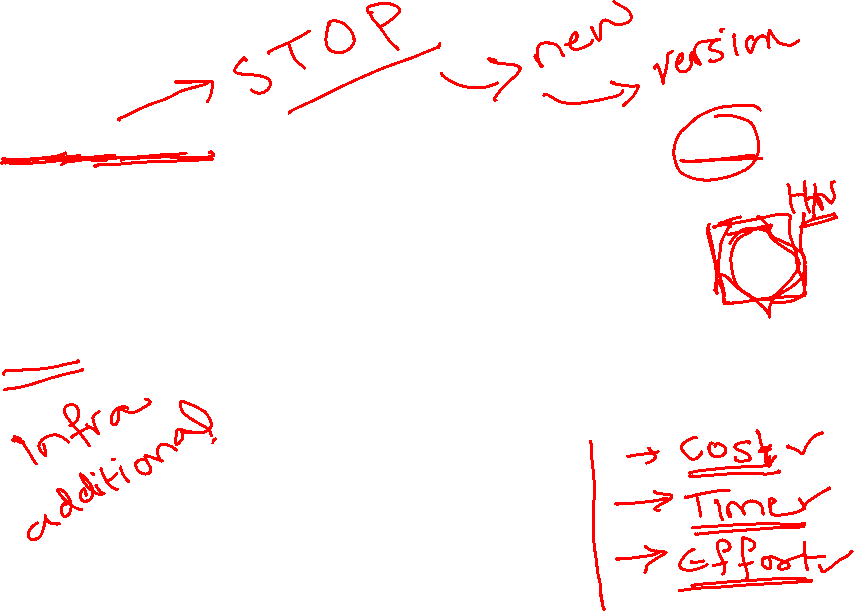 STOP
new
version
HW
Infra
additional
cost
Time
Effort